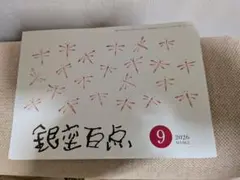 銀座百点
9
2026